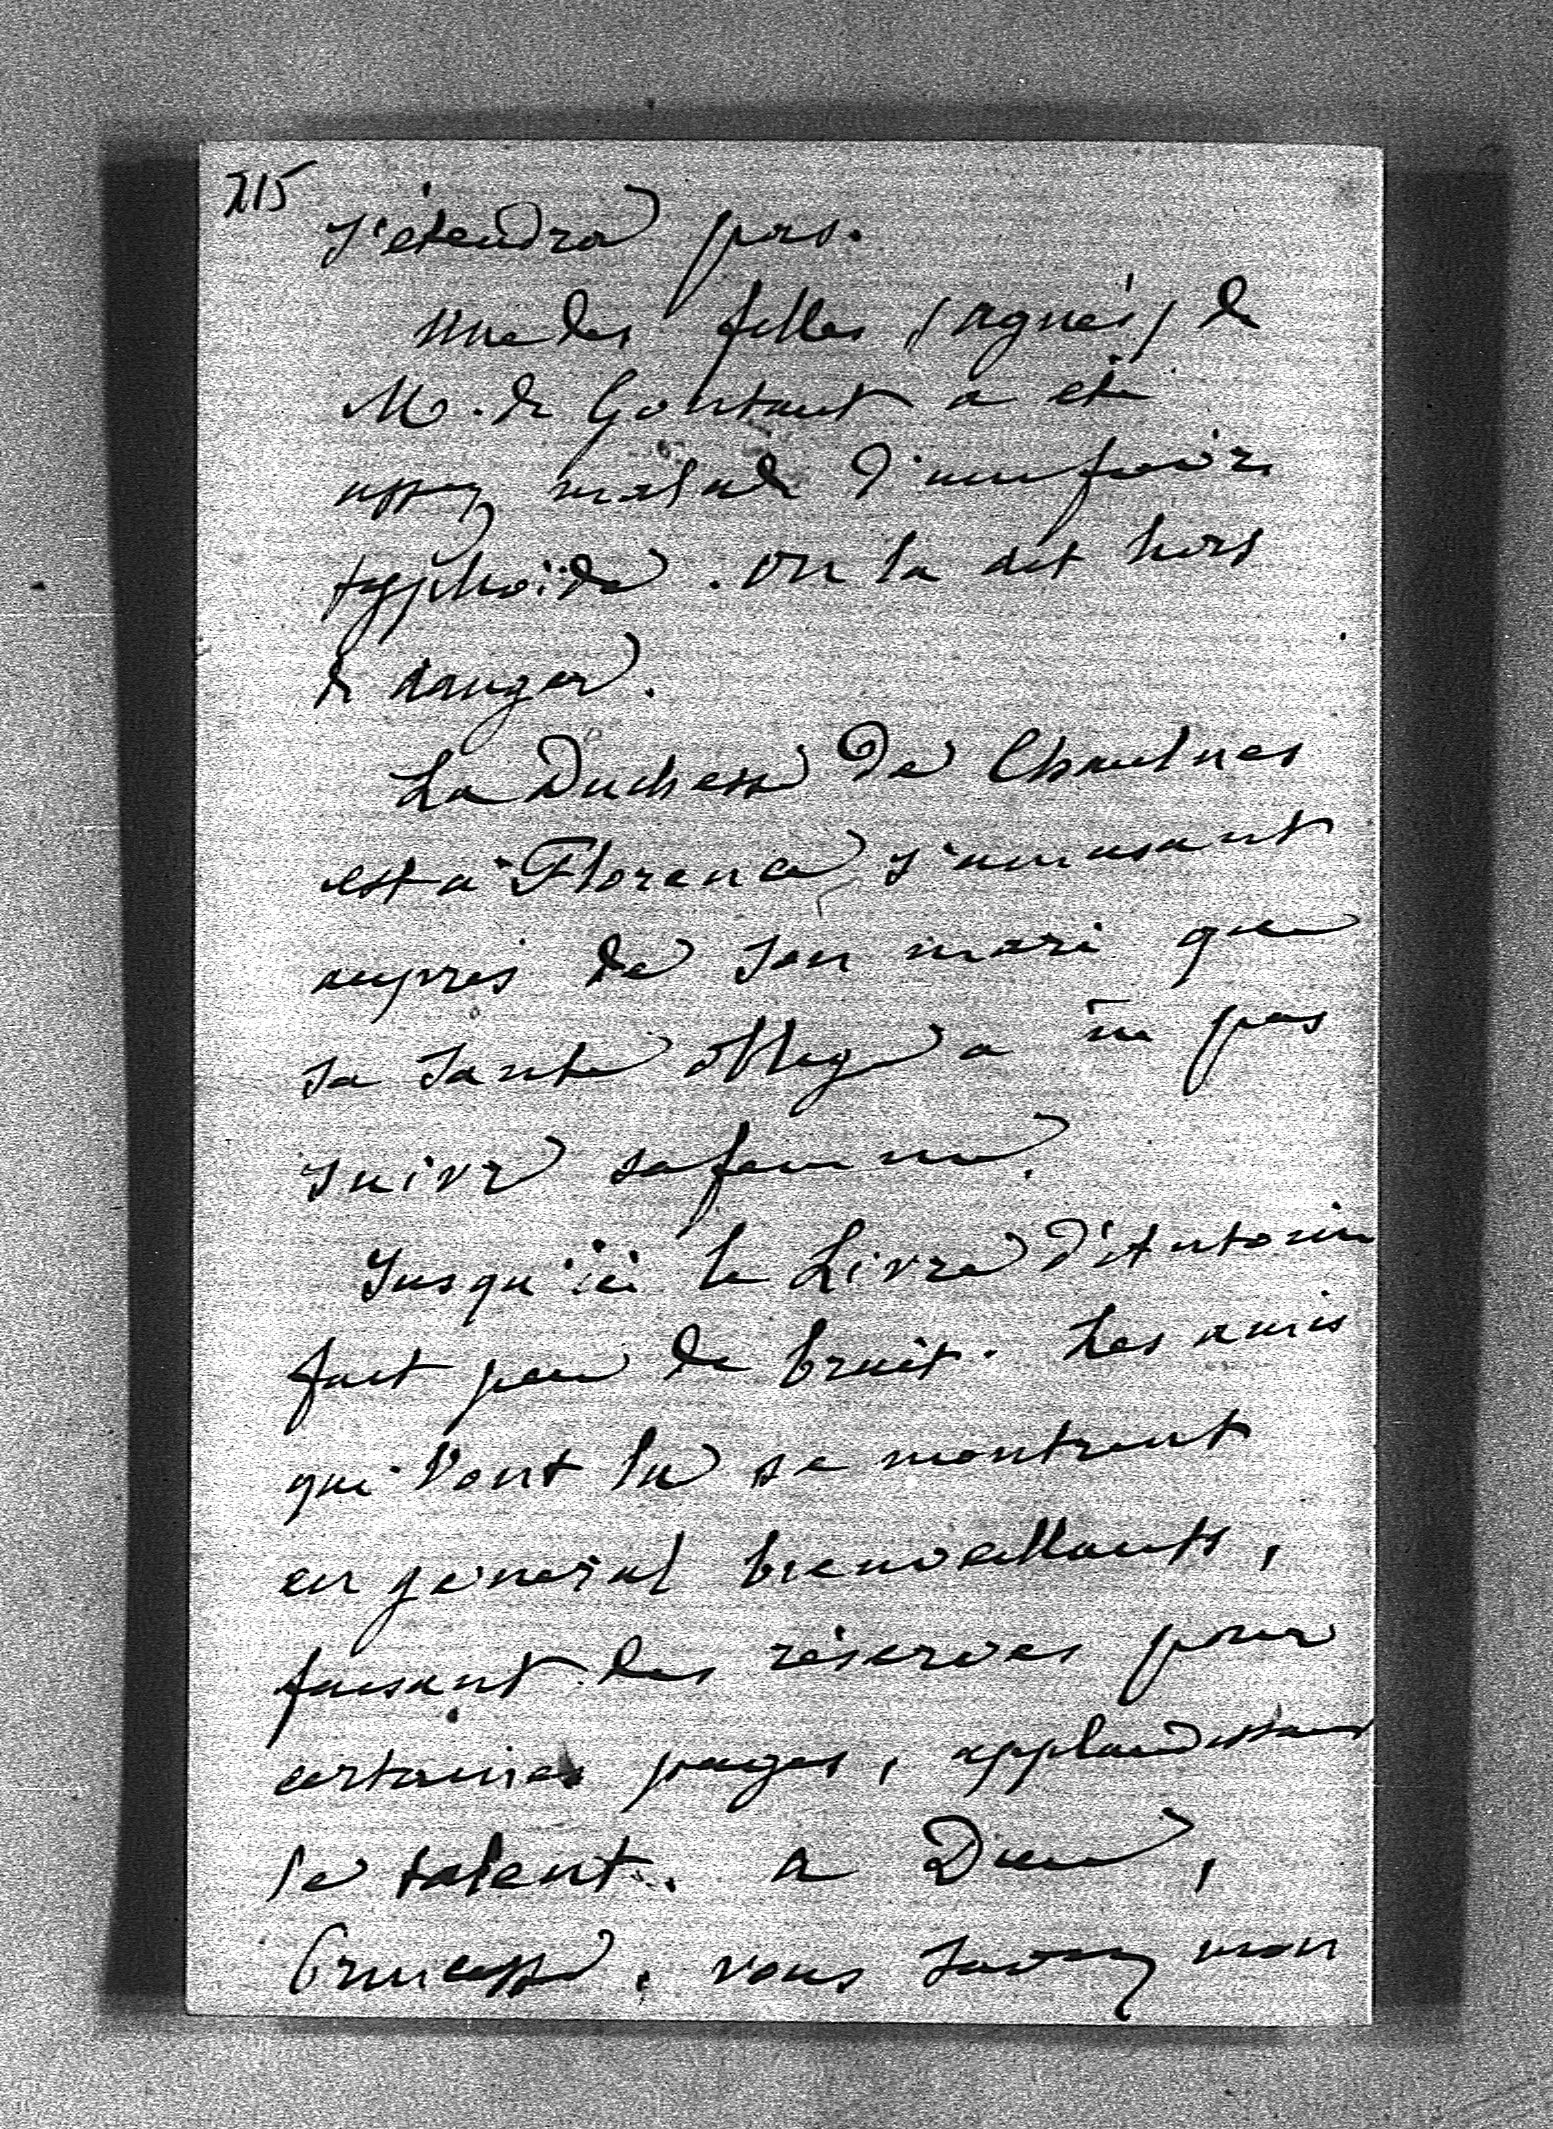 215
s'étendra pas.
une des filles (Agnès) de
M. de Gontaut a été
assez malade d'une fièvre
typhoïde. on la dit hors
de danger.
La Duchesse de Chaulnes
est à Florence s'amusant
auprès de son mari que
sa santé oblige a ne pas
suivre sa femme.
Jusqu'ici le Livre d'Antonin
fait peu de bruit. Les amis
qui l'ont lu se montrent
en général bienveillants,
faisant des réserves pour
certaines pages, applaudissant
le talent. a Dieu,
Princesse. vous savez mon